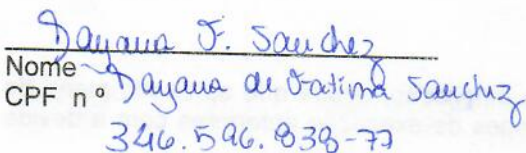 Dayana F. Sanchez
Nome Dayana de Fatima Sanchez
CPF nº
346.596.838-77